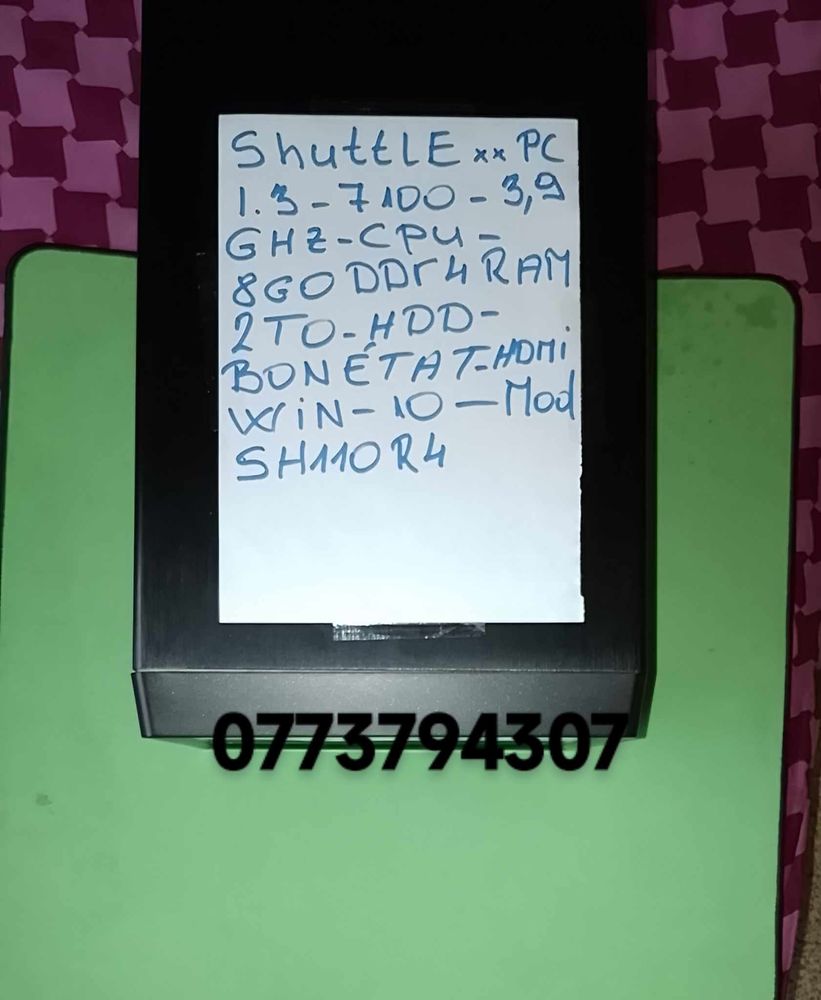 ShuttLE xx PC
1.3-7100-3,9
GHZ-CPU-
8GO DDr4 RAM
2TO-HDD-
BON ÉTAT-HDMi
WiN-10-Mod
SH110R4
0773794307